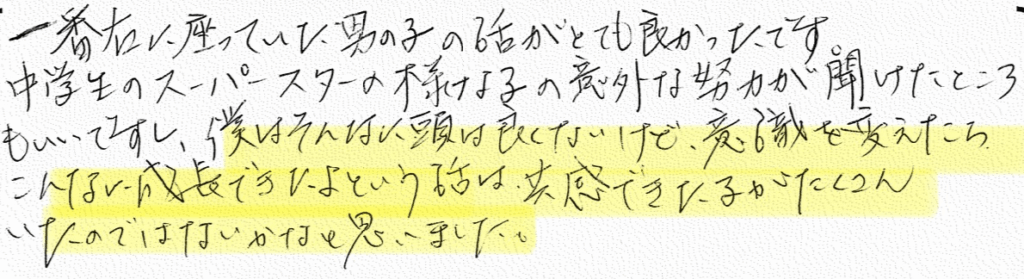 一番右に座っていた男の子の話がとても良かったです。
中学生のスーパースターの様な子の意外な努力が聞けたところ
もいいですし、「僕はそんなに頭は良くないけど、意識を変えたら
こんなに成長できたよという話は、共感できた子がたくさん
いたのではないかなと思いました。